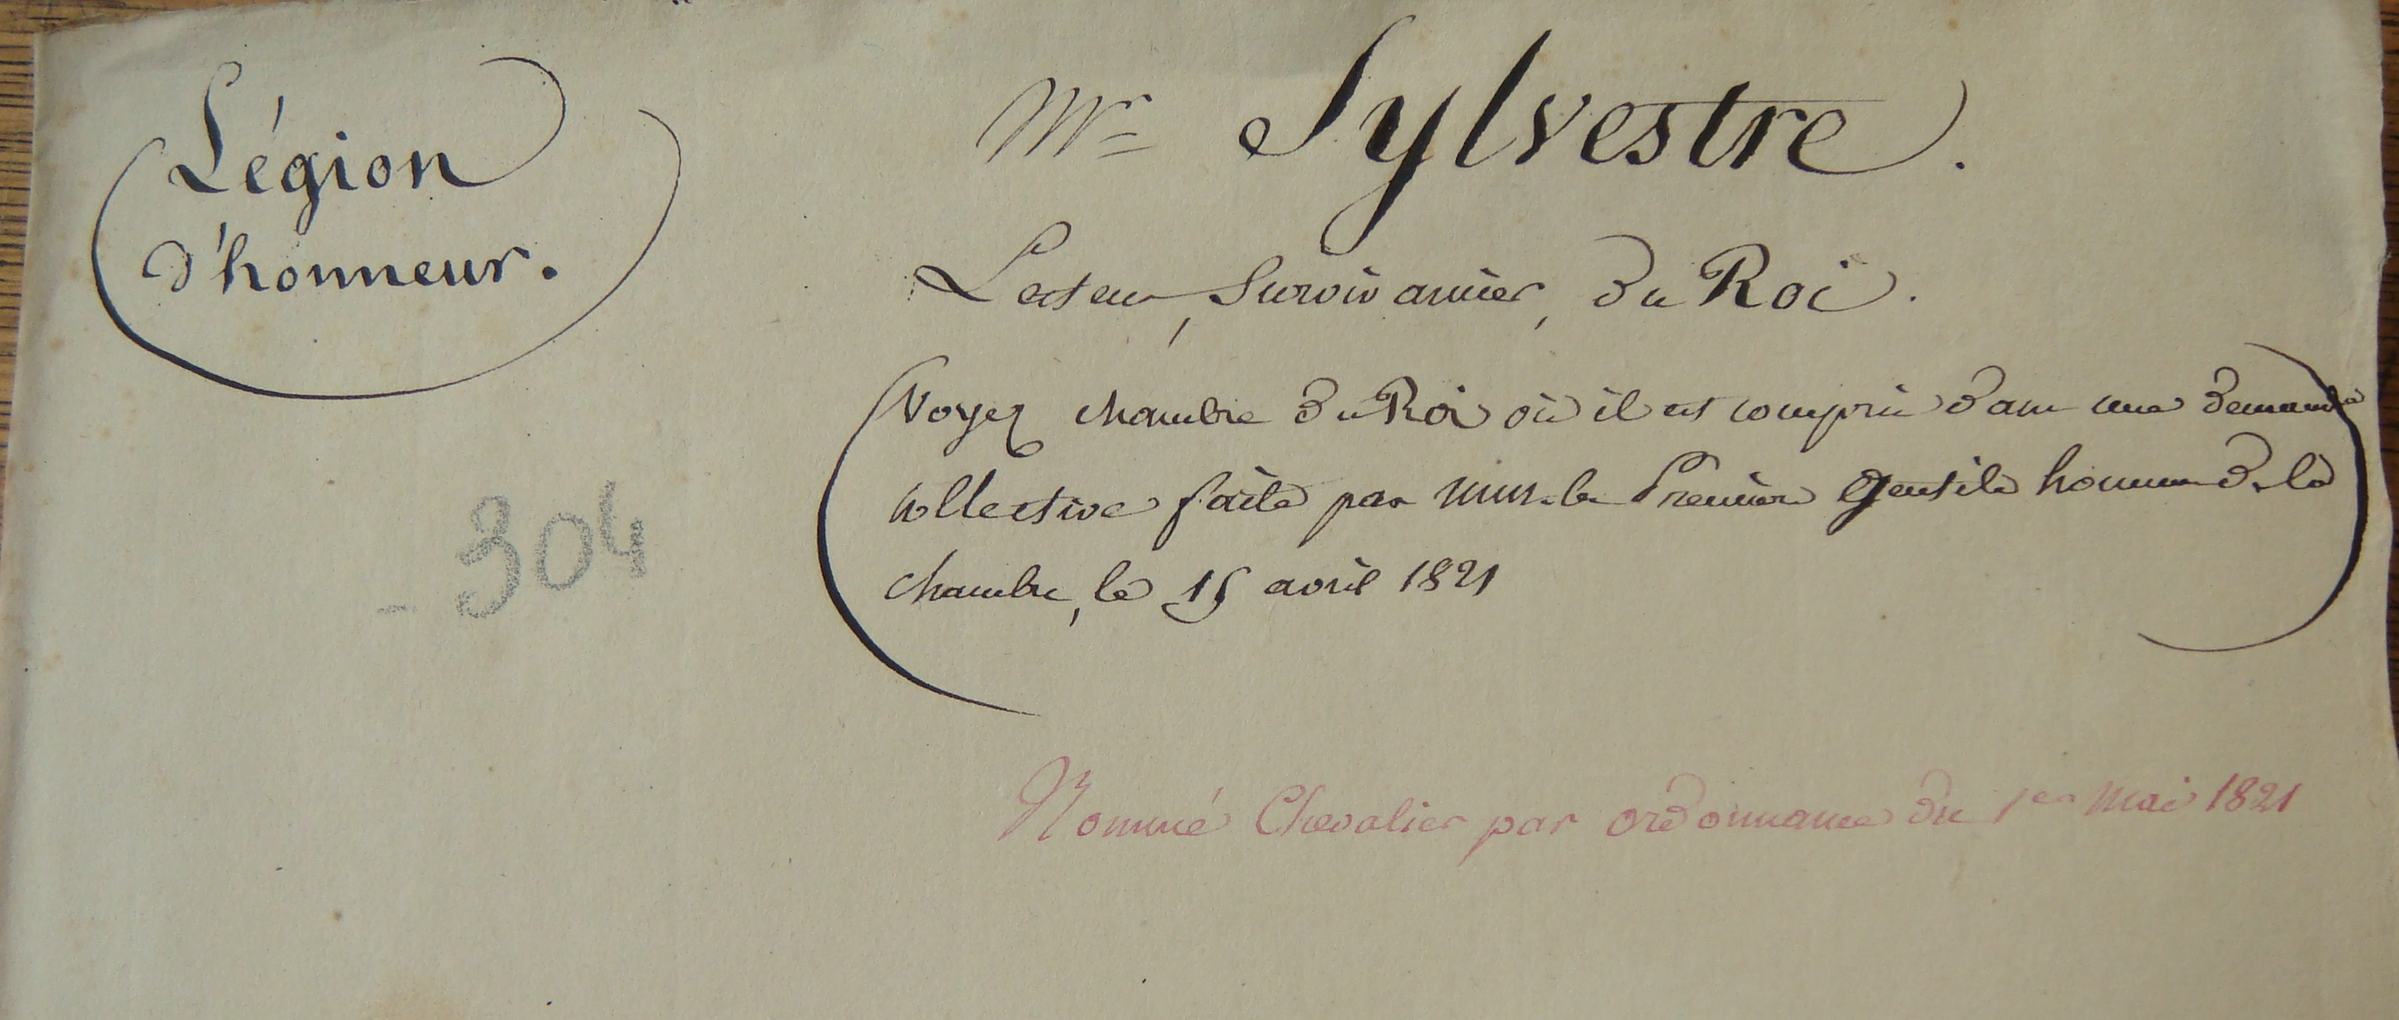 Légion
d'honneur.
Mr Sylvestre.
Lecteur, Survivancier, du Roi.
(Voyez chambre du Roi où il est compris dans une demande
collective faite par mm. les Premiers gentils hommes de la
chambre, le 15 avril 1821
304
Nommé Chevalier par ordonnance du 1er mai 1821